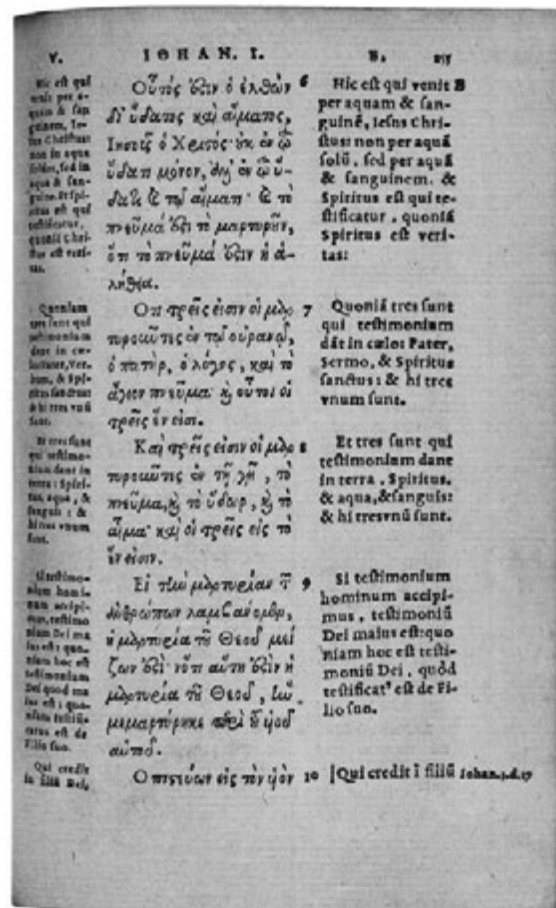 V.
IOHAN. I.
B.
Hic est qui
venit per a-
quam & san
guinem, Ie-
sus Christus:
non in aqua
solùm, sed in
aqua & san-
guine. Et Spi-
ritus est qui
testificatur,
quoniã Chri-
stus est veri-
tas.
Quoniam
tres sunt qui
testimonium
dant in cæ-
lo: Pater, Ver-
bum, & Spi-
ritus sanctus:
& hi tres vnũ
sunt.
Et tres sunt
qui testimo-
nium dant in
terra: Spiri-
tus, aqua, &
sanguis: &
hi tres vnum
sunt.
Si testimo-
nium homi-
num accipi-
mus, testimo
nium Dei ma
ius est: quo-
niam hoc est
testimonium
Dei quod ma
ius est: quo-
niam testifi-
catus est de
Filio suo.
Qui credit
in filiũ Dei,
Οὗτός ἐστιν ὁ ἐλθὼν
δι' ὕδατος καὶ αἵματος,
Ἰησοῦς ὁ Χριστός· οὐκ ἐν τῷ
ὕδατι μόνον, ἀλλ' ἐν τῷ ὕ-
δατι καὶ τῷ αἵματι· καὶ τὸ
πνεῦμά ἐστι τὸ μαρτυροῦν,
ὅτι τὸ πνεῦμά ἐστιν ἡ ἀ-
λήθεια.
Οτι τρεῖς εἰσιν οἱ μαρ
τυροῦντες ἐν τῷ οὐρανῷ,
ὁ πατὴρ, ὁ λόγος, καὶ τὸ
ἅγιον πνεῦμα· καὶ οὗτοι οἱ
τρεῖς ἕν εἰσι.
Καὶ τρεῖς εἰσιν οἱ μαρ
τυροῦντες ἐν τῇ γῇ, τὸ
πνεῦμα, καὶ τὸ ὕδωρ, καὶ τὸ
αἷμα· καὶ οἱ τρεῖς εἰς τὸ
ἕν εἰσιν.
Εἰ τὴν μαρτυρίαν τῶν
ἀνθρώπων λαμβάνομεν,
ἡ μαρτυρία τοῦ Θεοῦ μεί
ζων ἐστί· ὅτι αὕτη ἐστὶν ἡ
μαρτυρία τοῦ Θεοῦ, ἣν
μεμαρτύρηκε περὶ τοῦ υἱοῦ
αὐτοῦ.
Ο πιστεύων εἰς τὸν υἱὸν
6 Hic est qui venit B
per aquam & san-
guinẽ, Iesus Chri-
stus: non per aquã
solũ, sed per aquã
& sanguinem. &
Spiritus est qui te-
stificatur, quoniã
Spiritus est veri-
tas:
7 Quoniã tres sunt
qui testimonium
dãt in cælo: Pater,
Sermo, & Spiritus
sanctus: & hi tres
vnum sunt.
8 Et tres sunt qui
testimonium dant
in terra, Spiritus,
& aqua, & sanguis:
& hi tres vnũ sunt.
9 Si testimonium
hominum accipi-
mus, testimoniũ
Dei maius est: quo
niam hoc est testi-
moniũ Dei, quòd
testificat' est de Fi-
lio suo.
10 Qui credit ĩ filiũ Iohan.3.d.